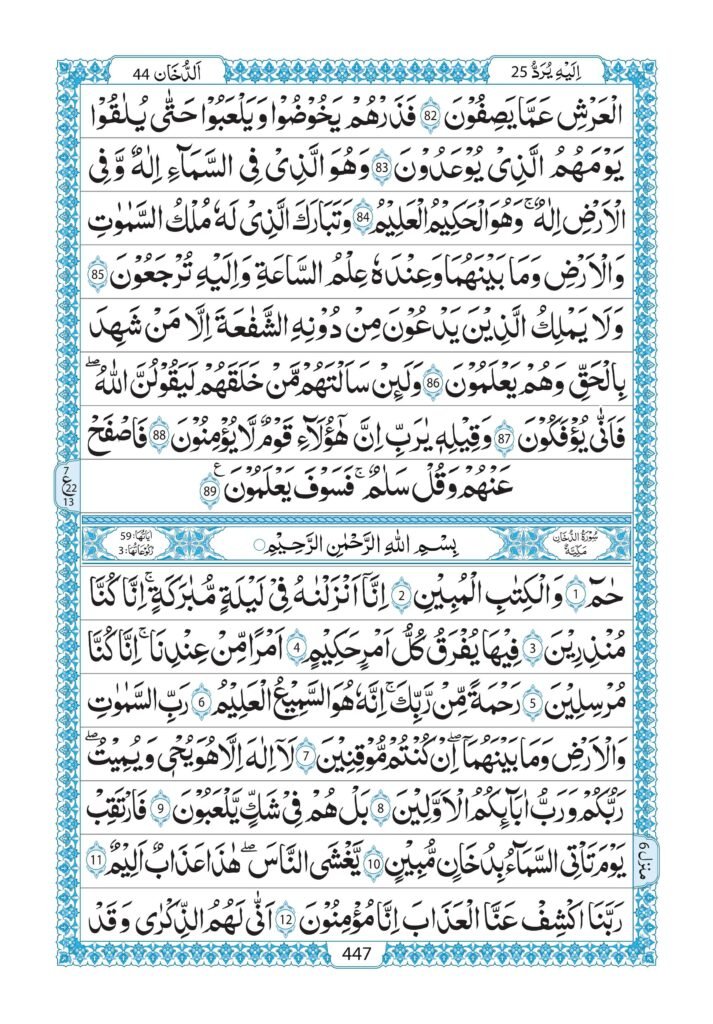 اِلَيْهِ يُرَدُّ 25
اَلدُّخَان 44
الْعَرْشِ عَمَّا يَصِفُوْنَ 82 فَذَرْهُمْ يَخُوْضُوْا وَيَلْعَبُوْا حَتّٰى يُلٰقُوْا
يَوْمَهُمُ الَّذِىْ يُوْعَدُوْنَ 83 وَهُوَ الَّذِىْ فِى السَّمَآءِ اِلٰهٌ وَّفِى
الْاَرْضِ اِلٰهٌ ۚ وَهُوَ الْحَكِيْمُ الْعَلِيْمُ 84 وَتَبَارَكَ الَّذِىْ لَهٗ مُلْكُ السَّمٰوٰتِ
وَالْاَرْضِ وَمَا بَيْنَهُمَا وَعِنْدَهٗ عِلْمُ السَّاعَةِ وَاِلَيْهِ تُرْجَعُوْنَ 85
وَلَا يَمْلِكُ الَّذِيْنَ يَدْعُوْنَ مِنْ دُوْنِهِ الشَّفٰعَةَ اِلَّا مَنْ شَهِدَ
بِالْحَقِّ وَهُمْ يَعْلَمُوْنَ 86 وَلَئِنْ سَاَلْتَهُمْ مَّنْ خَلَقَهُمْ لَيَقُوْلُنَّ اللّٰهُ ۖ
فَاَنّٰى يُؤْفَكُوْنَ 87 وَقِيْلِهٖ يٰرَبِّ اِنَّ هٰٓؤُلَآءِ قَوْمٌ لَّا يُؤْمِنُوْنَ 88 فَاصْفَحْ
عَنْهُمْ وَقُلْ سَلٰمٌ ۚ فَسَوْفَ يَعْلَمُوْنَ ع 89
7
ع 22
13
سُوْرَةُ الدُّخَانِ
مَكِّيَّةٌ
بِسْمِ اللّٰهِ الرَّحْمٰنِ الرَّحِيْمِ
اٰيَاتُهَا: 59
رُكُوْعَاتُهَا: 3
حٰمٓ 1 وَالْكِتٰبِ الْمُبِيْنِ 2 اِنَّآ اَنْزَلْنٰهُ فِىْ لَيْلَةٍ مُّبٰرَكَةٍ ۚ اِنَّا كُنَّا
مُنْذِرِيْنَ 3 فِيْهَا يُفْرَقُ كُلُّ اَمْرٍ حَكِيْمٍ 4 اَمْرًا مِّنْ عِنْدِنَا ۚ اِنَّا كُنَّا
مُرْسِلِيْنَ 5 رَحْمَةً مِّنْ رَّبِّكَ ۚ اِنَّهٗ هُوَ السَّمِيْعُ الْعَلِيْمُ 6 رَبِّ السَّمٰوٰتِ
وَالْاَرْضِ وَمَا بَيْنَهُمَآ ۖ اِنْ كُنْتُمْ مُّوْقِنِيْنَ 7 لَآ اِلٰهَ اِلَّا هُوَ يُحْىٖ وَيُمِيْتُ ۖ
رَبُّكُمْ وَرَبُّ اٰبَآئِكُمُ الْاَوَّلِيْنَ 8 بَلْ هُمْ فِىْ شَكٍّ يَّلْعَبُوْنَ 9 فَارْتَقِبْ
يَوْمَ تَاْتِى السَّمَآءُ بِدُخَانٍ مُّبِيْنٍ 10 يَّغْشَى النَّاسَ ۖ هٰذَا عَذَابٌ اَلِيْمٌ 11
رَبَّنَا اكْشِفْ عَنَّا الْعَذَابَ اِنَّا مُؤْمِنُوْنَ 12 اَنّٰى لَهُمُ الذِّكْرٰى وَقَدْ
منزل 6
447